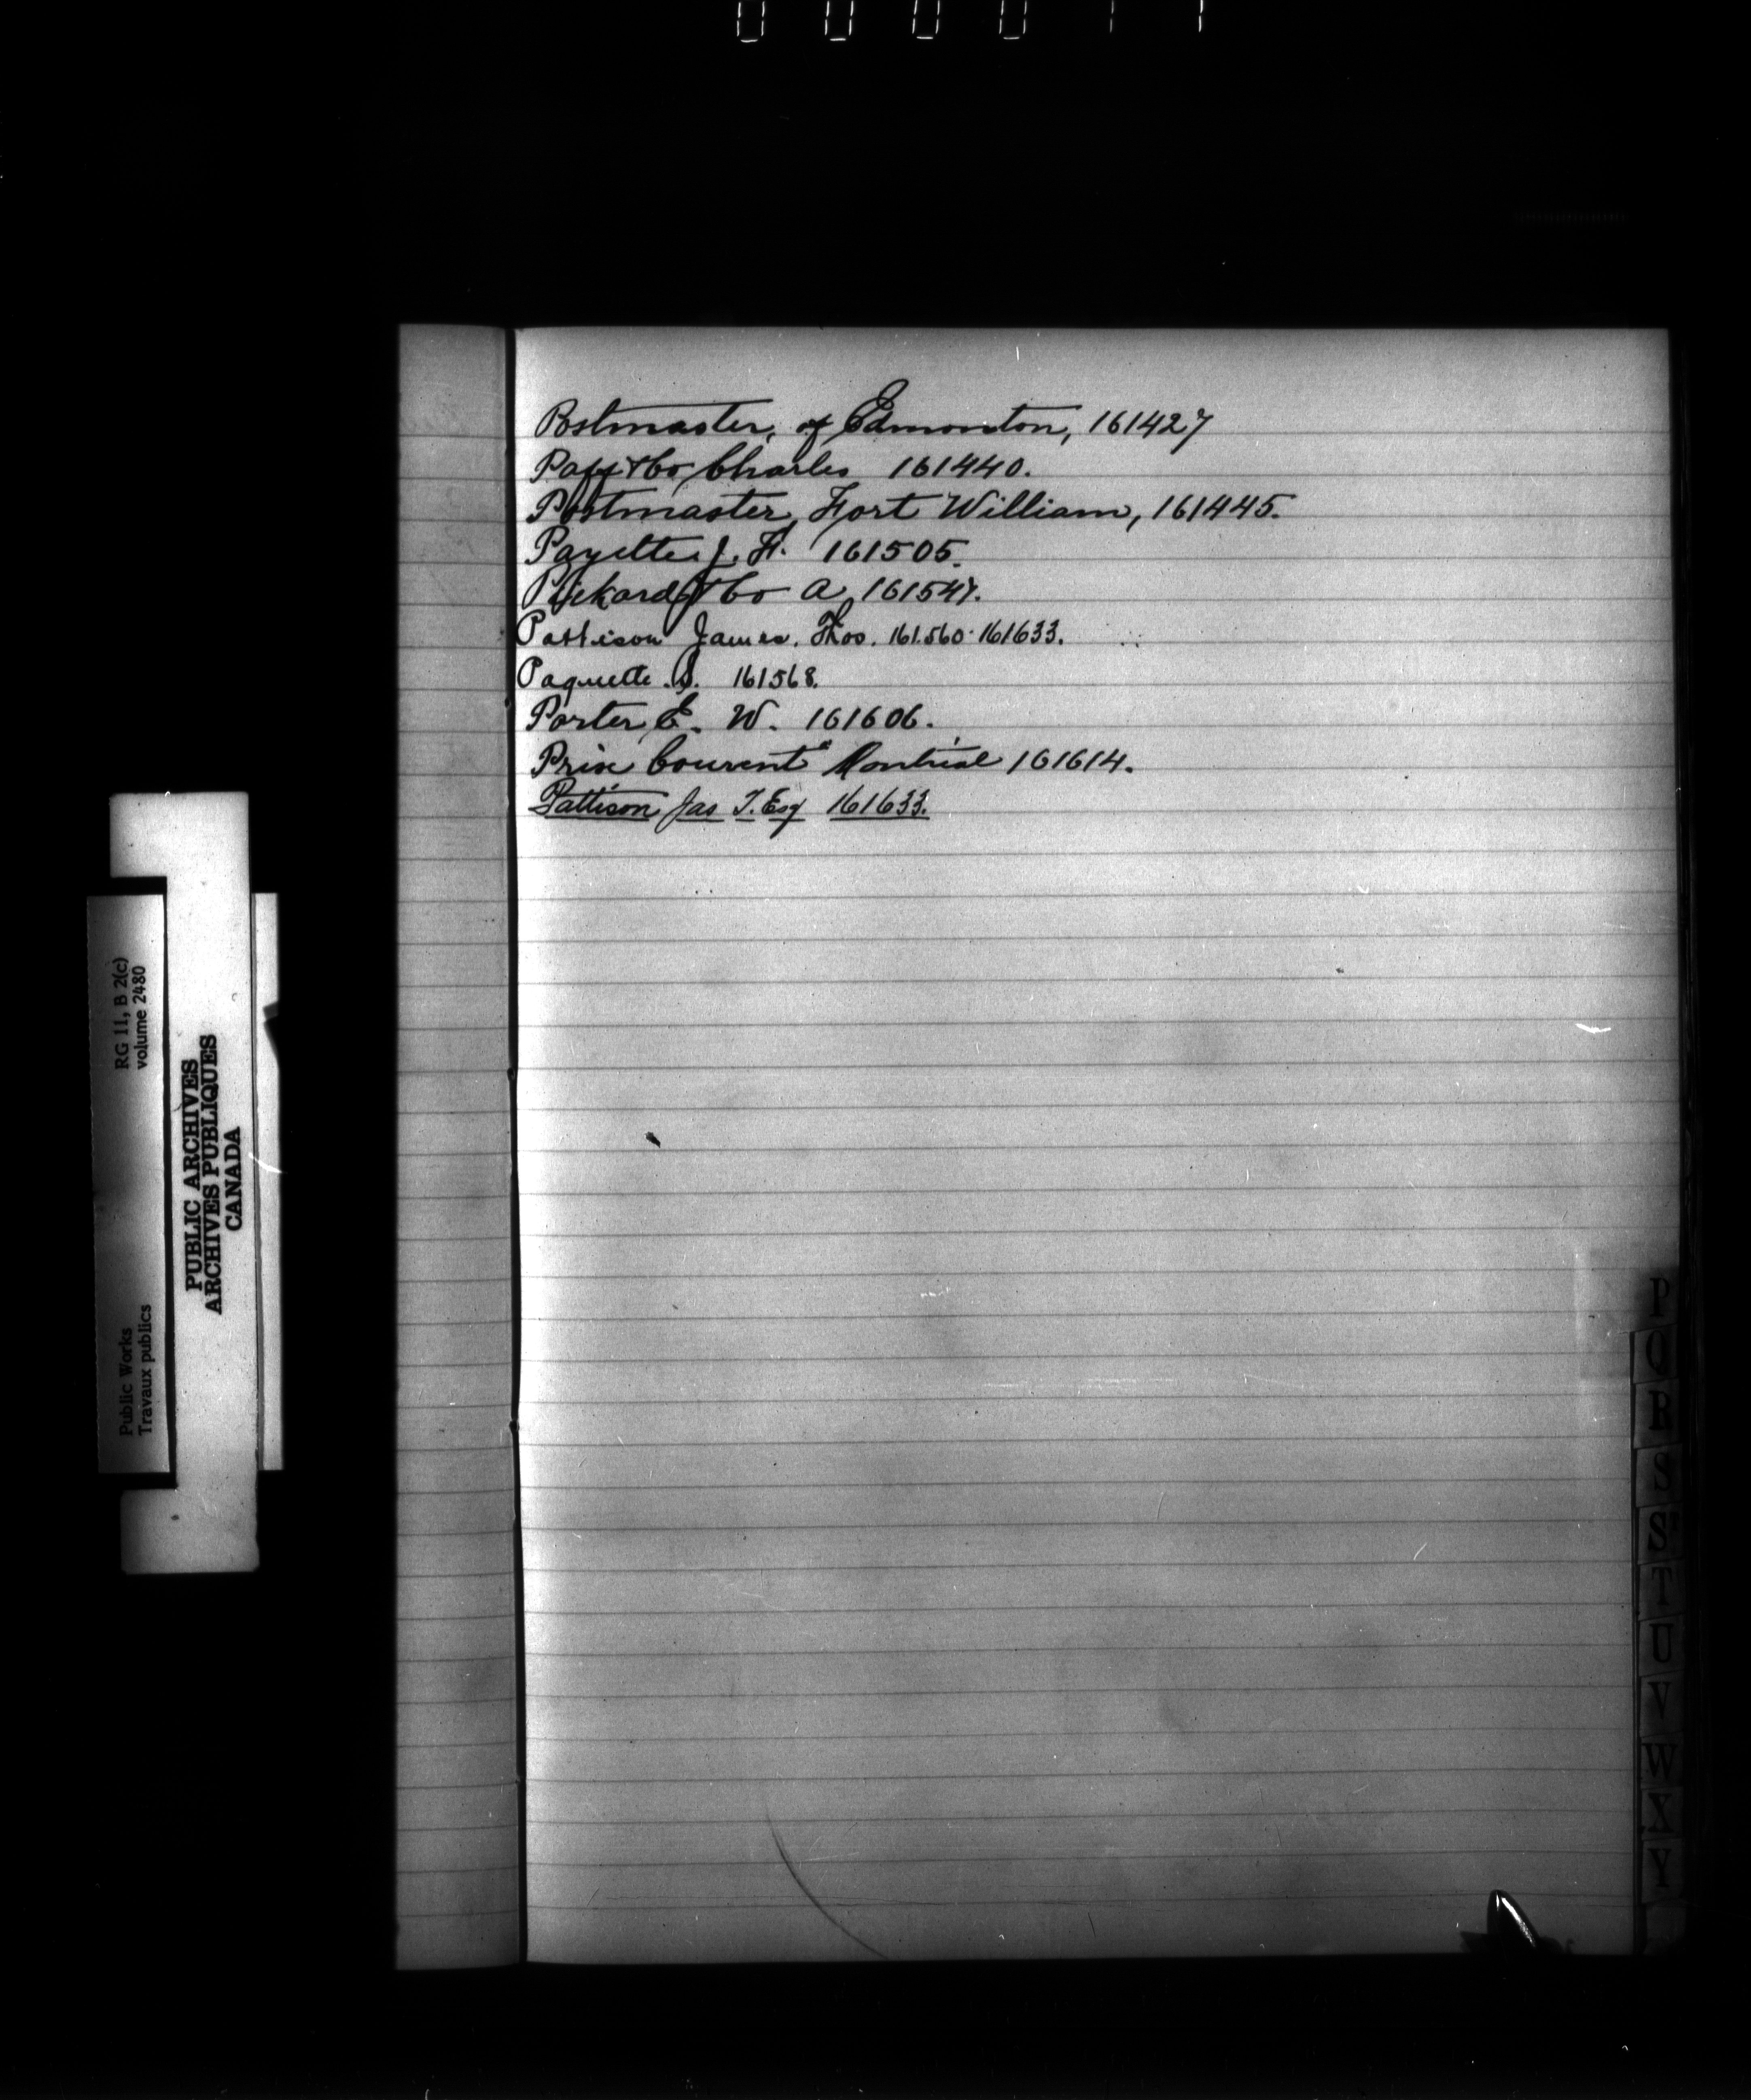 000011
Postmaster, of Edmonton, 161427
Paff & Co Charles 161440.
Postmaster, Fort William, 161445.
Payette J. H. 161505.
Pickard & Co A 161547.
Pattison James. Thos. 161.560. 161633.
Paquette . S. 161568.
Porter E. W. 161606.
Prix Courent" Montréal 161614.
Pattison Jas T. Esq 161633.
RG 11, B 2(c)
volume 2480
PUBLIC ARCHIVES
ARCHIVES PUBLIQUES
CANADA
Public Works
Travaux publics
P
Q
R
S
S
T
U
V
W
X
Y